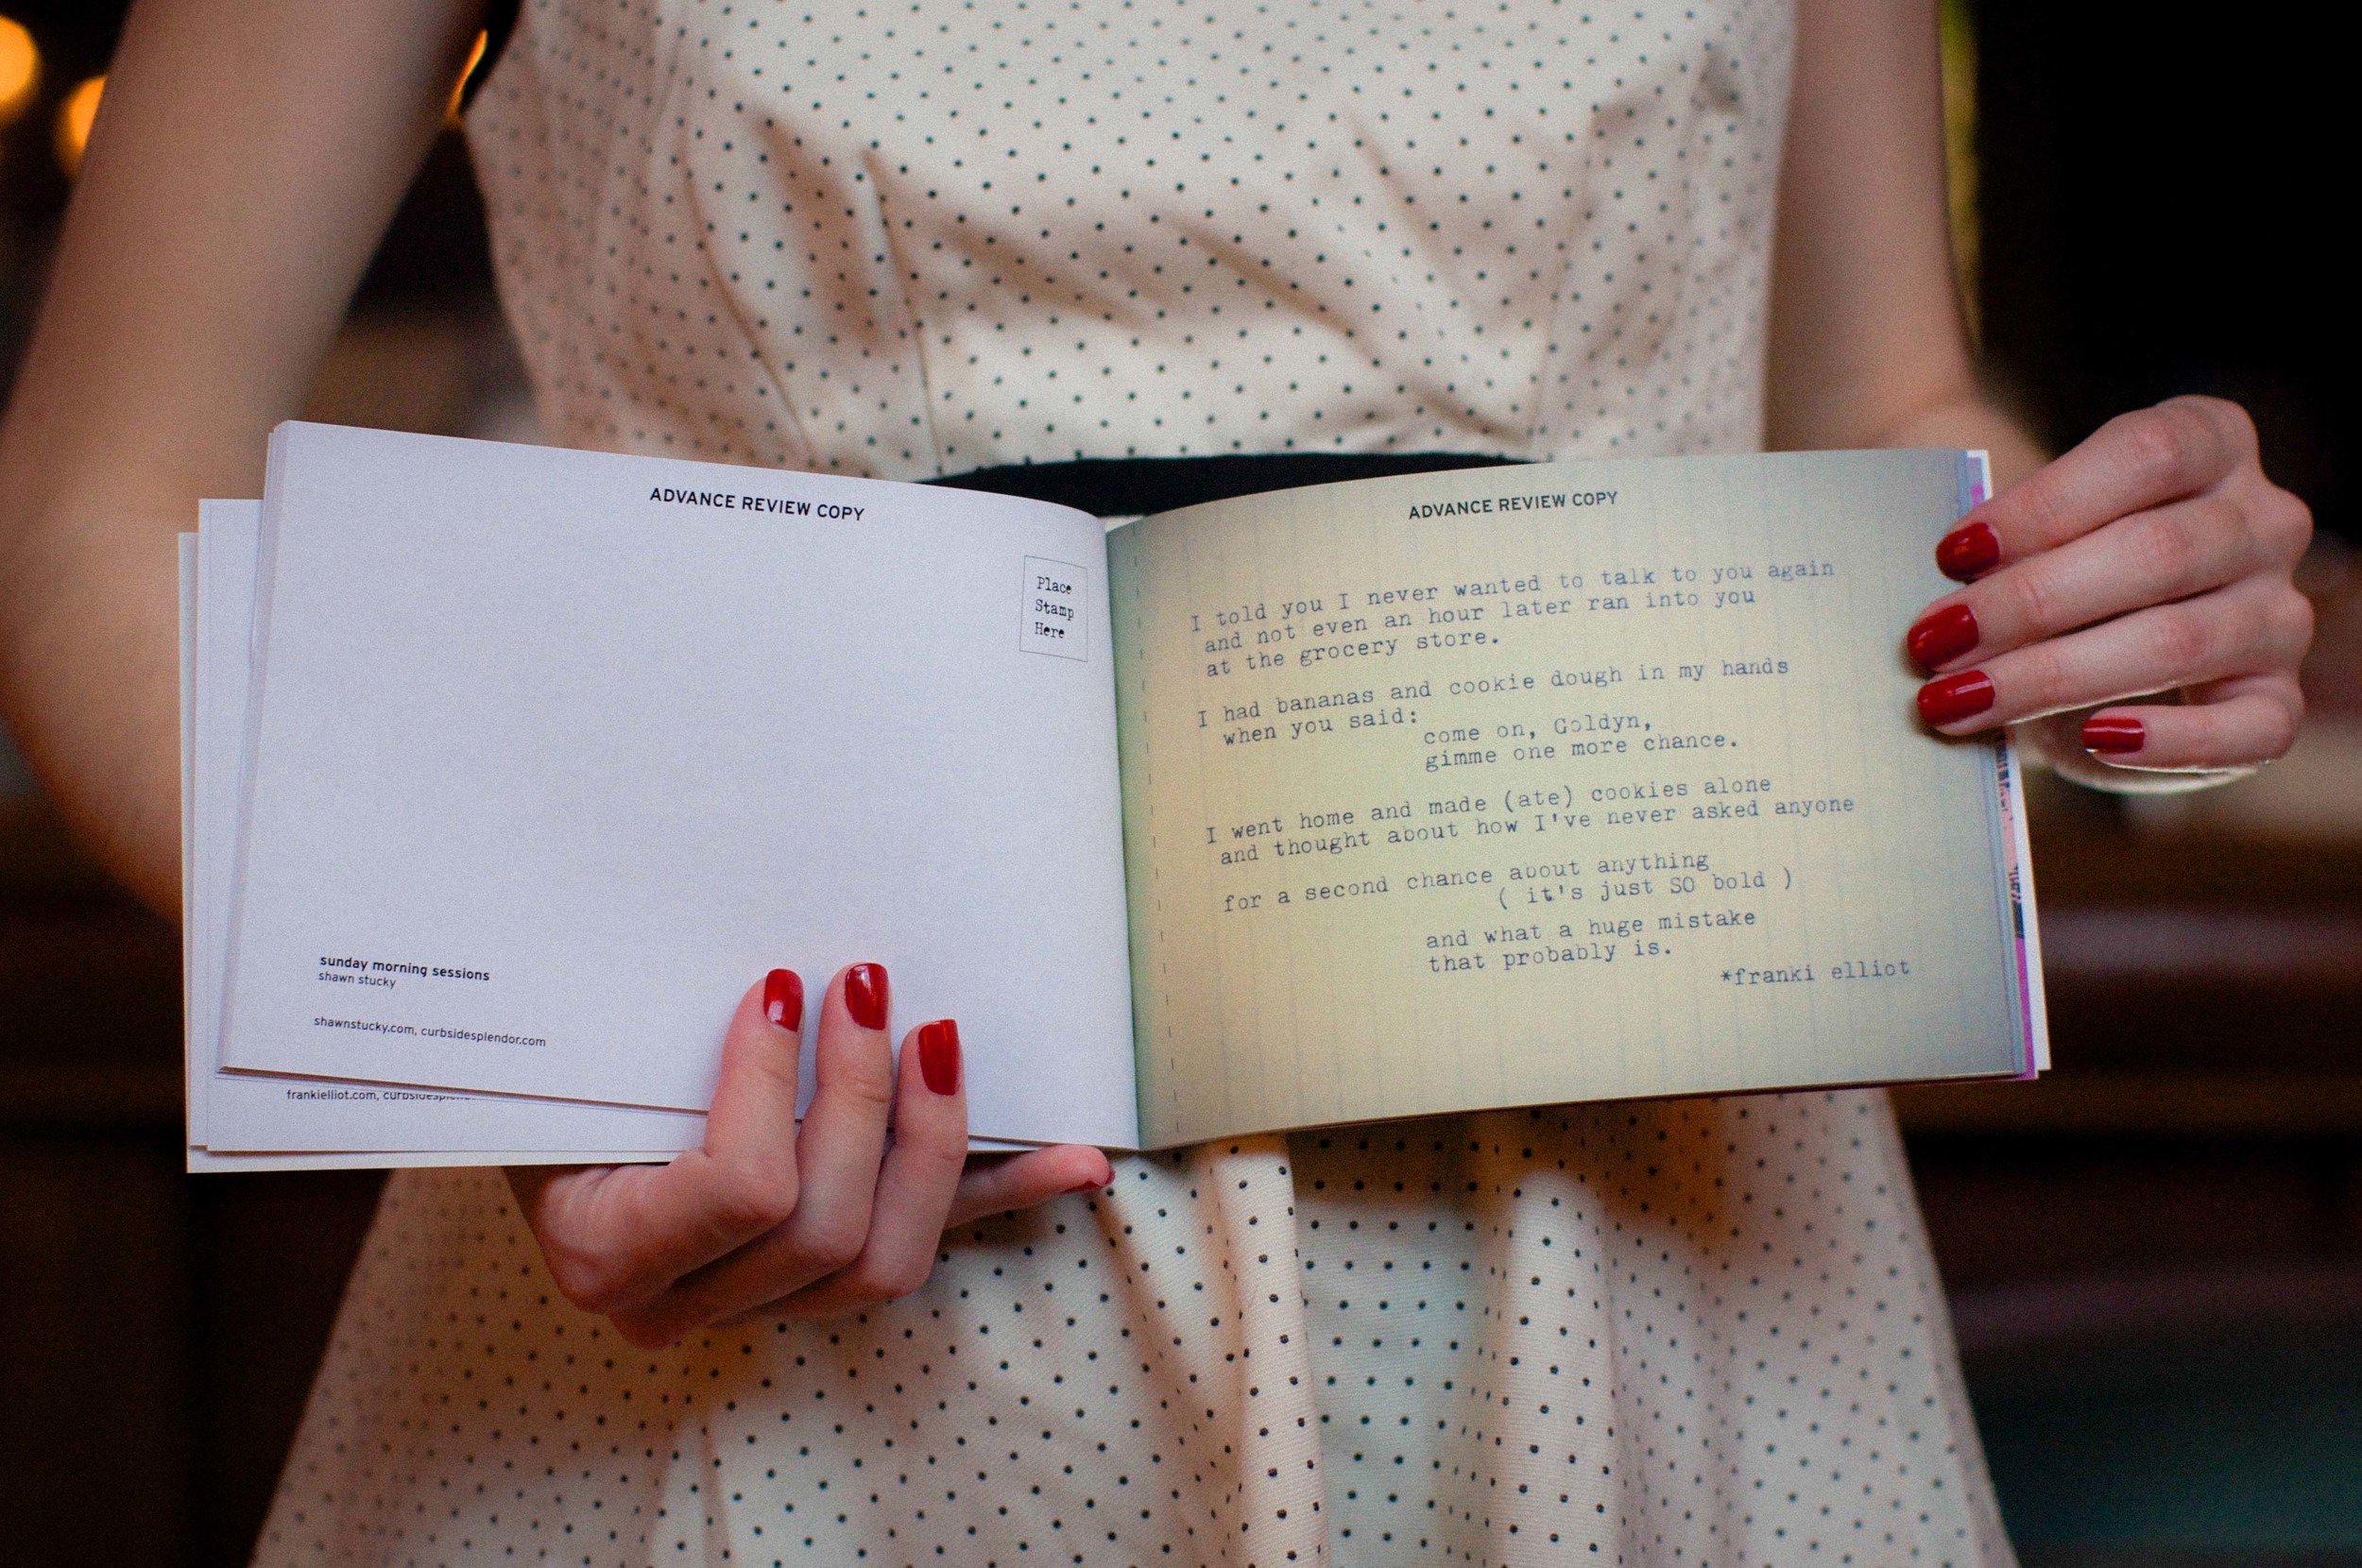 ADVANCE REVIEW COPY
Place
Stamp
Here
sunday morning sessions
shawn stucky
shawnstucky.com, curbsidesplendor.com
frankielliot.com,
ADVANCE REVIEW COPY
I told you I never wanted to talk to you again
and not even an hour later ran into you
at the grocery store.
I had bananas and cookie dough in my hands
when you said:
come on, Goldyn,
gimme one more chance.
I went home and made (ate) cookies alone
and thought about how I've never asked anyone
for a second chance about anything
( it's just SO bold )
and what a huge mistake
that probably is.
*franki elliot